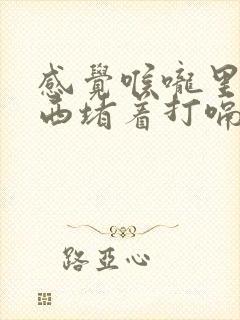 感覺喉嚨里
西堵着打嗝
路亞心